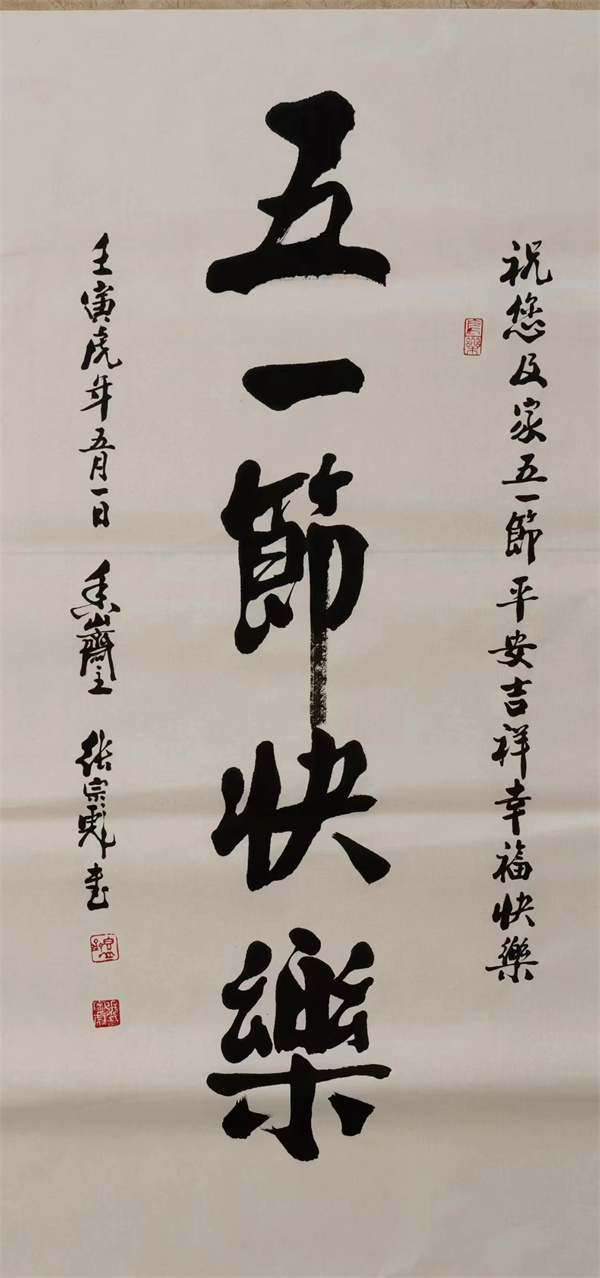 祝您及家五一節平安吉祥幸福快樂
五一節快樂
壬寅虎年五月一日 山齋主 張宗彪書